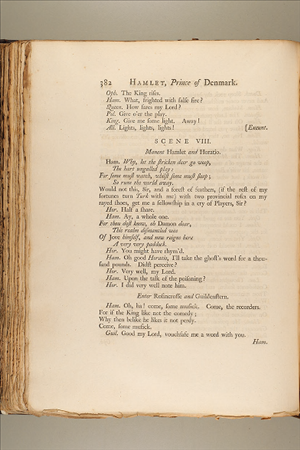 382 HAMLET, Prince of Denmark.
Oph. The King rises.
Ham. What, frighted with false fire?
Queen. How fares my Lord?
Pol. Give o'er the play.
King. Give me some light. Away!
All. Lights, lights, lights! [Exeunt.
SCENE VIII.
Manent Hamlet and Horatio.
Ham. Why, let the strucken deer go weep,
The hart ungalled play;
For some must watch, whilst some must sleep;
So runs the world away.
Would not this, Sir, and a forest of feathers, (if the rest of my
fortunes turn Turk with me) with two provincial roses on my
rayed shoes, get me a fellowship in a cry of Players, Sir?
Hor. Half a share.
Ham. Ay, a whole one.
For thou dost know, oh Damon dear,
This realm dismantled was
Of Jove himself, and now reigns here
A very very paddock.
Hor. You might have rhym'd.
Ham. Oh good Horatio, I'll take the ghost's word for a thou-
sand pounds. Didst perceive?
Hor. Very well, my Lord.
Ham. Upon the talk of the poisoning?
Hor. I did very well note him.
Enter Rosincrosse and Guildenstern.
Ham. Oh, ha! come, some musick. Come, the recorders.
For if the King like not the comedy;
Why then belike he likes it not perdy.
Come, some musick.
Guil. Good my Lord, vouchsafe me a word with you.
Ham.